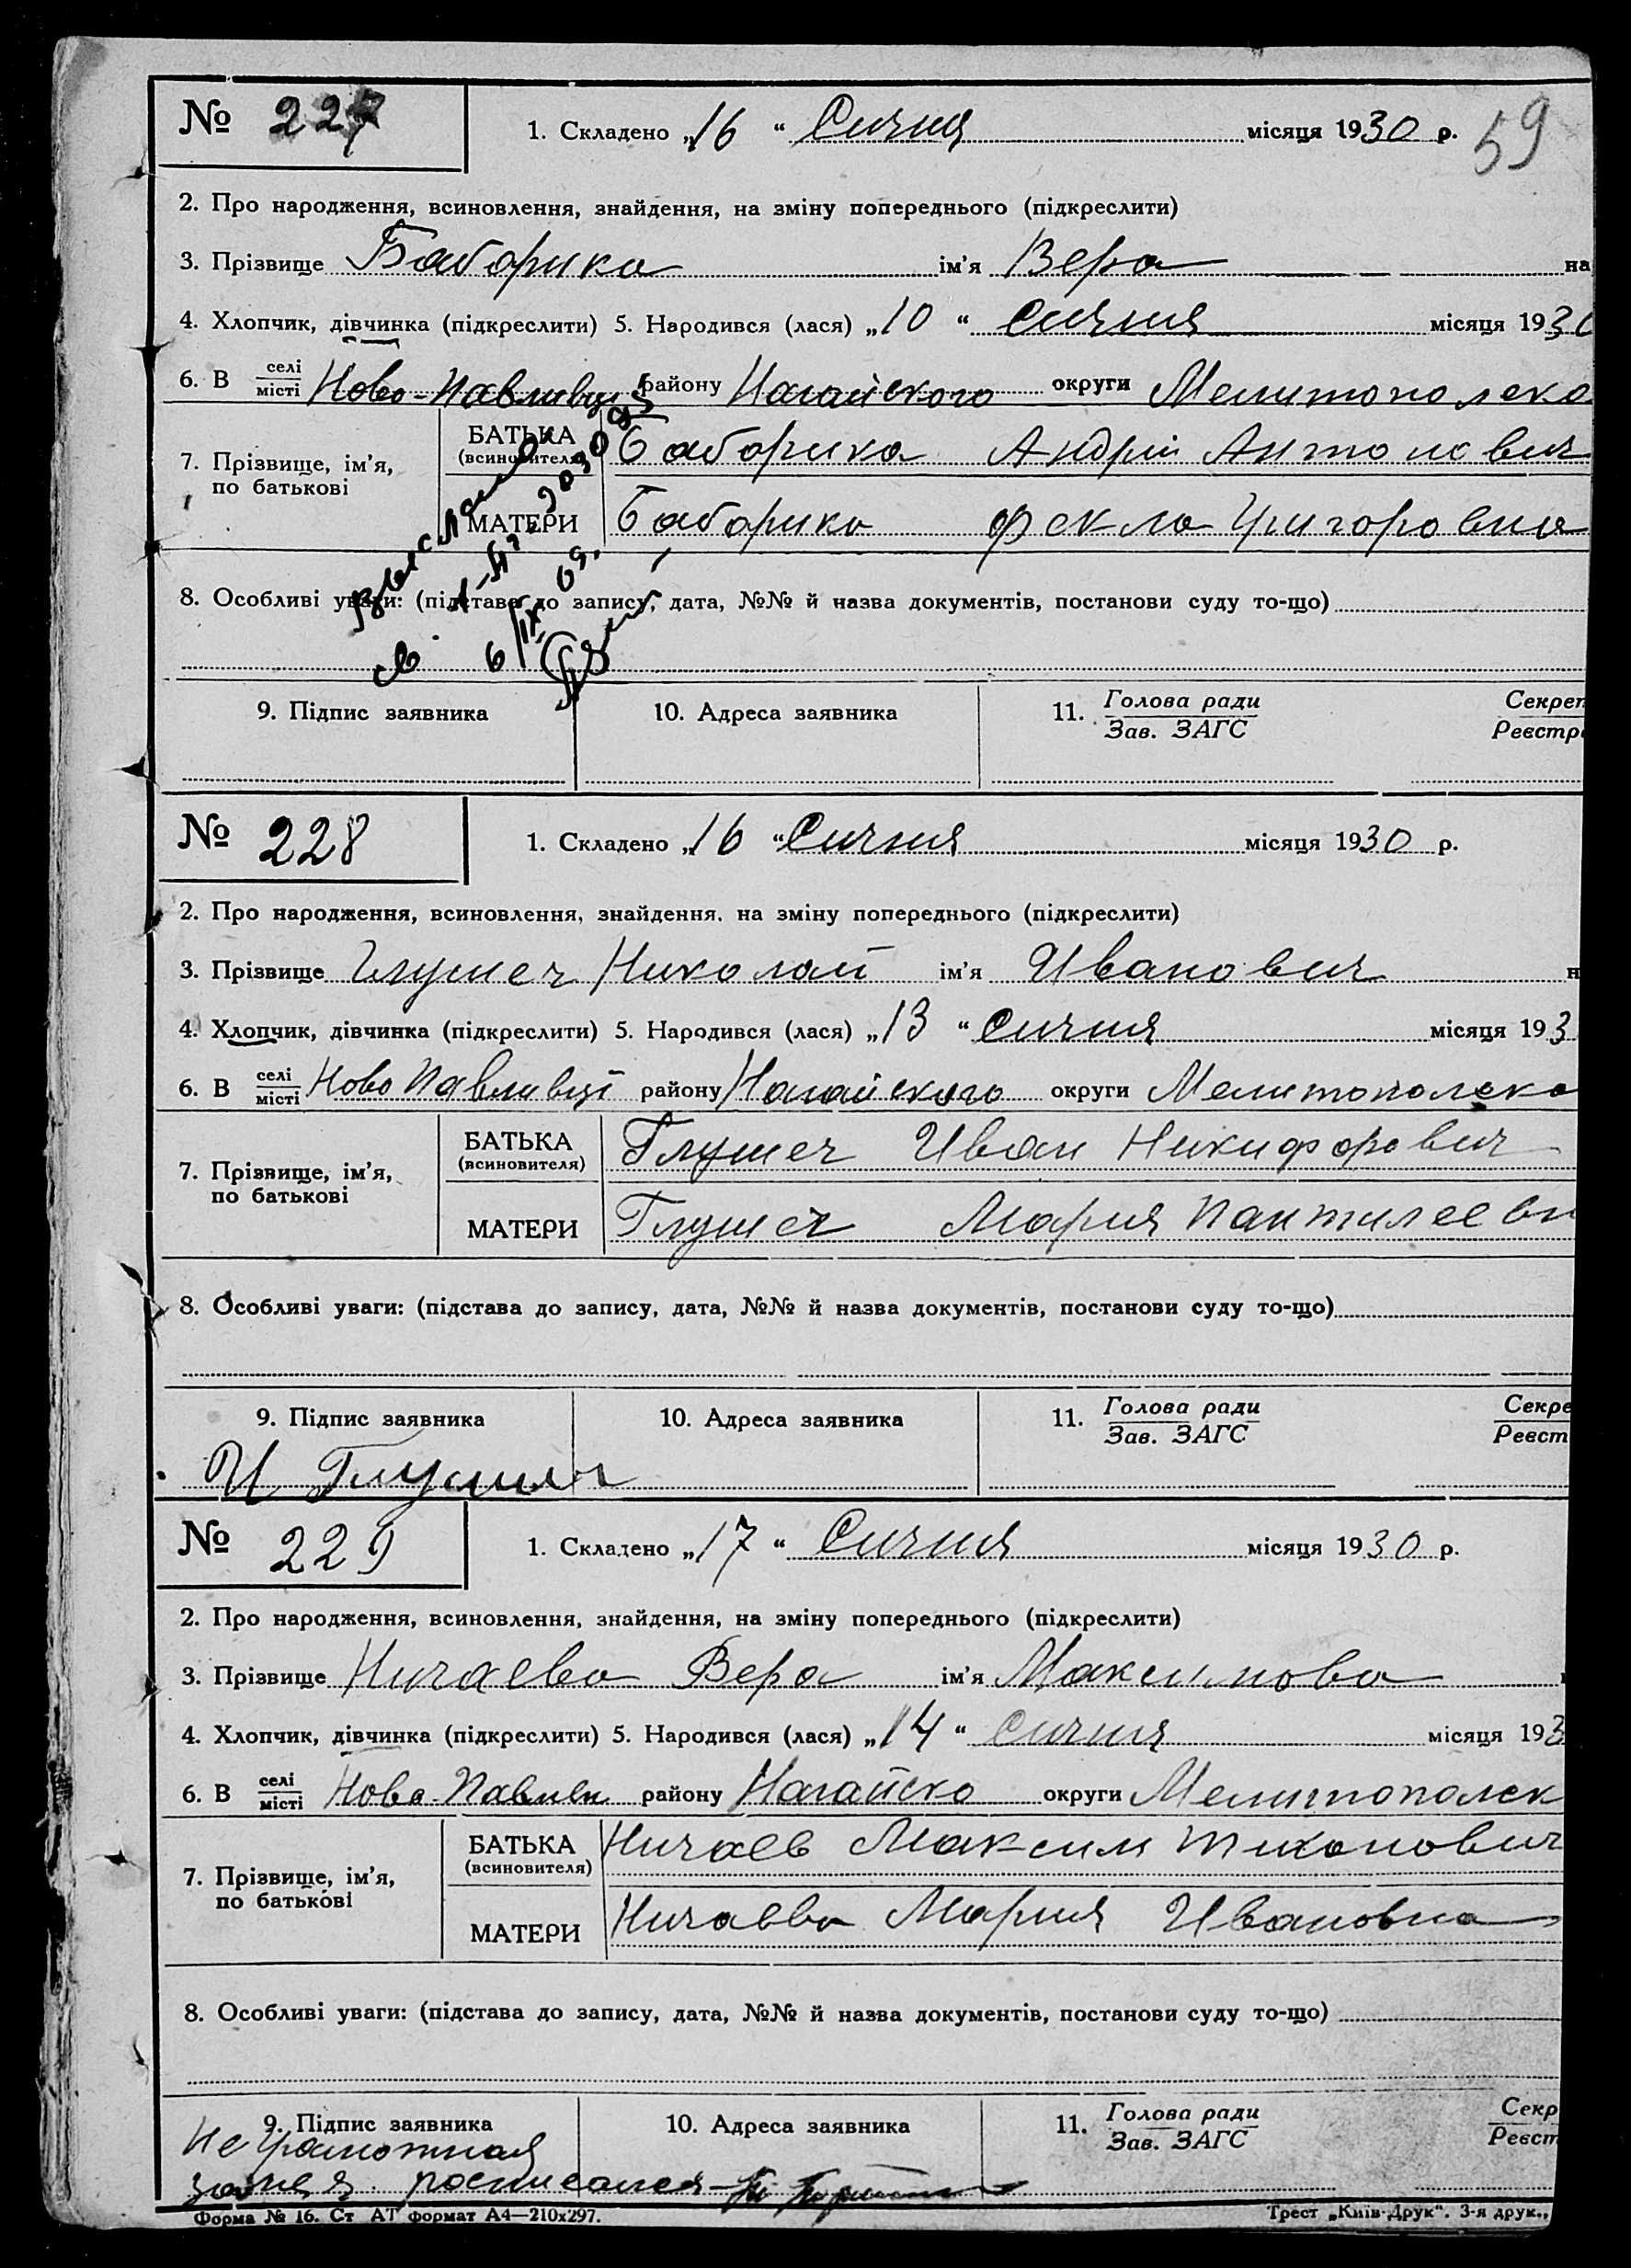 № 227 1. Складено „16“ Сичня місяця 1930 р. 59
2. Про народження, всиновлення, знайдення, на зміну попереднього (підкреслити)
3. Прізвище Баборика ім'я Вера на
4. Хлопчик, дівчинка (підкреслити) 5. Народився (лася) „10“ Сичня місяця 1930
6. В селі/місті Ново-Павливці району Нагайского округи Мелитополско
7. Прізвище, ім'я, по батькові
БАТЬКА (всиновителя) Баборика Андрій Антонович
МАТЕРИ Баборика Фекла Григоровна
Выслано
6/IX 69.
8. Особливі уваги: (підстава до запису, дата, №№ й назва документів, постанови суду то-що)
9. Підпис заявника 10. Адреса заявника 11. Голова ради/Зав. ЗАГС Секрет/Реєстра
№ 228 1. Складено „16“ Сичня місяця 1930 р.
2. Про народження, всиновлення, знайдення, на зміну попереднього (підкреслити)
3. Прізвище Глушеч Николай ім'я Иванович н
4. Хлопчик, дівчинка (підкреслити) 5. Народився (лася) „13“ Сичня місяця 193
6. В селі/місті Ново Павливці району Нагайского округи Мелитополско
7. Прізвище, ім'я, по батькові
БАТЬКА (всиновителя) Глушеч Иван Никифорович
МАТЕРИ Глушеч Мария Пантилеевн
8. Особливі уваги: (підстава до запису, дата, №№ й назва документів, постанови суду то-що)
9. Підпис заявника 10. Адреса заявника 11. Голова ради/Зав. ЗАГС Секре/Реєст
И
№ 229 1. Складено „17“ Сичня місяця 1930 р.
2. Про народження, всиновлення, знайдення, на зміну попереднього (підкреслити)
3. Прізвище Ничаева Вера ім'я Максимова
4. Хлопчик, дівчинка (підкреслити) 5. Народився (лася) „14“ сичня місяця 193
6. В селі/місті Ново-Павливк району Нагайско округи Мелитополск
7. Прізвище, ім'я, по батькові
БАТЬКА (всиновителя) Ничаев Максим Тихонович
МАТЕРИ Ничаева Мария Ивановна
8. Особливі уваги: (підстава до запису, дата, №№ й назва документів, постанови суду то-що)
9. Підпис заявника 10. Адреса заявника 11. Голова ради/Зав. ЗАГС Секр/Реєст
Не грамотная
за нея росписался
Форма № 16. Ст АТ формат А4—210х297. Трест „Київ-Друк“. 3-я друк.,